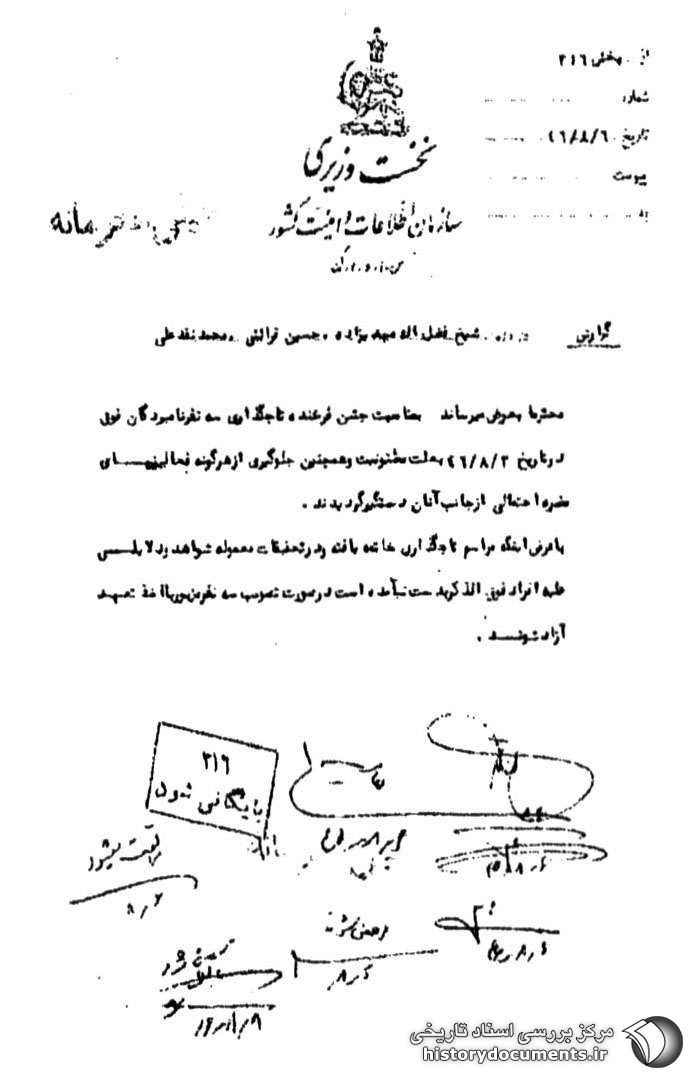 از بخش ۳۱۶
شماره
تاریخ ۴۶/۸/۶
پیوست
نخست وزیری
سازمان اطلاعات و امنیت کشور
س.ا.و.ا.ک
خیلی محرمانه
گزارش
درباره شیخ فضل اله مهدیزاده ـ حسین قرائتی ـ محمد نقدعلی
محترما بعرض میرساند بمناسبت جشن فرخنده تاجگذاری سه نفر نامبردگان فوق
در تاریخ ۴۶/۸/۳ بعلت مظنونیت و همچنین جلوگیری از هرگونه فعالیتهـــای
مضره احتمالی از جانب آنان دستگیر گردیدند .
با عرض اینکه مراسم تاجگذاری خاتمه یافته و در تحقیقات معموله شواهد و دلایلـــی
علیه افراد فوق الذکر بدست نیآمده است در صورت تصویب سه نفر مزبور با اخذ تعهـد
آزاد شونــد .
۳۱۶
بایگانی شود
مرخص شوند
مرکز بررسی اسناد تاریخی
historydocuments.ir